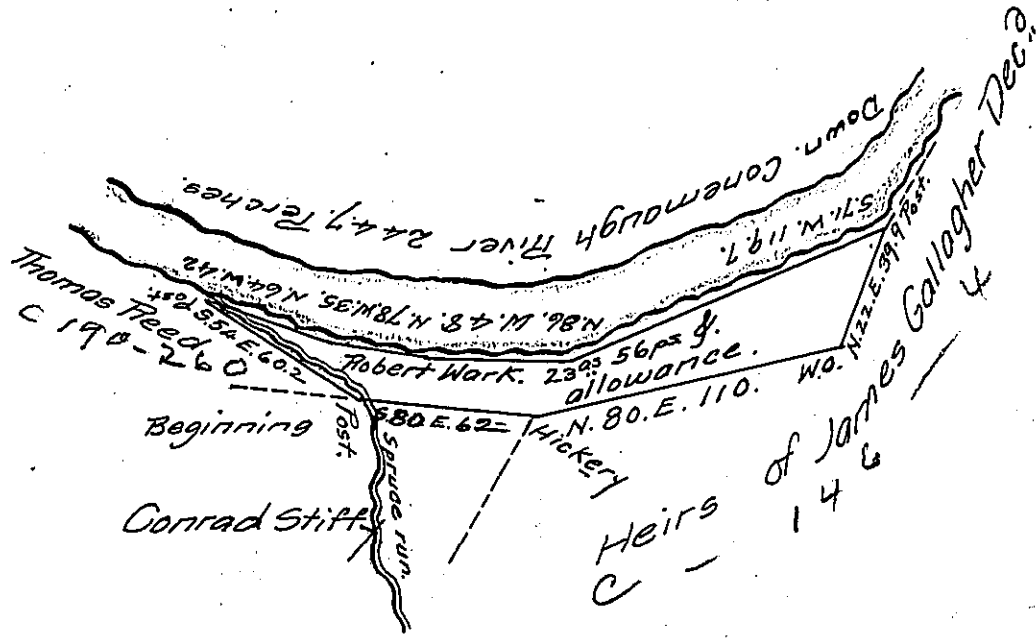 Down. Conemaugh River 244.7. Perches.
S.71.W. 119.7.
N.86.W.48. N.78.W.35. N.64.W.42
Post.
Thomas Reed
C 190-260
Post S.54.E.60.2
Robert Wark. 23as 56ps &
allowance.
N.22.E.39.9
W.O.
N.80.E.110.
S.80.E.62
Hickery
Beginning
Post.
Spruce run.
Conrad Stiff
Heirs of James Gallagher Decd
C - 146 - 4